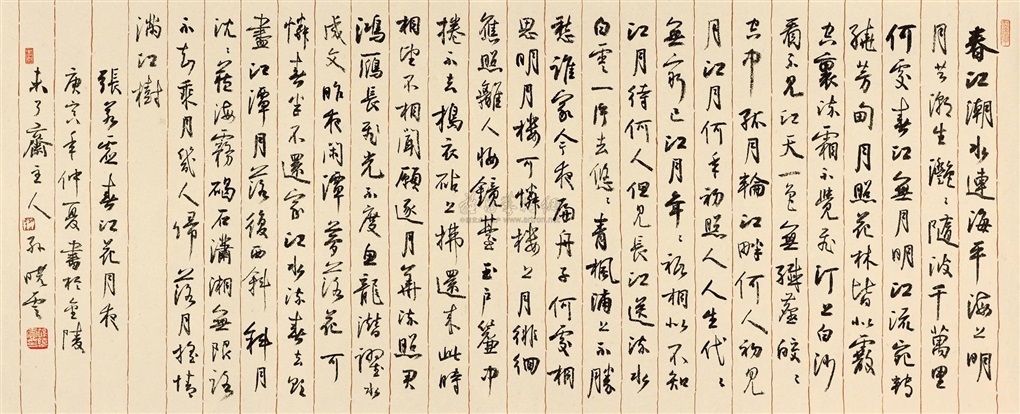 春江潮水連海平海上明
月共潮生灧〻隨波千萬里
何處春江無月明江流宛轉
繞芳甸月照花林皆似霰
空裏流霜不覺飛汀上白沙
看不見江天一色無纖塵皎〻
空中孤月輪江畔何人初見
月江月何年初照人人生代〻
無窮已江月年〻祗相似不知
江月待何人但見長江送流水
白雲一片去悠〻青楓浦上不勝
愁誰家今夜扁舟子何處相
思明月樓可憐樓上月徘徊
應照離人妝鏡臺玉戶簾中
捲不去搗衣砧上拂還來此時
相望不相聞願逐月華流照君
鴻雁長飛光不度魚龍潛躍水
成文昨夜閑潭夢落花可
憐春半不還家江水流春去欲
盡江潭月落復西斜斜月
沈〻藏海霧碣石瀟湘無限路
不知乘月幾人歸落月搖情
滿江樹
張若虛春江花月夜
庚寅年仲夏書於金陵
未了齋主人孫曉雲